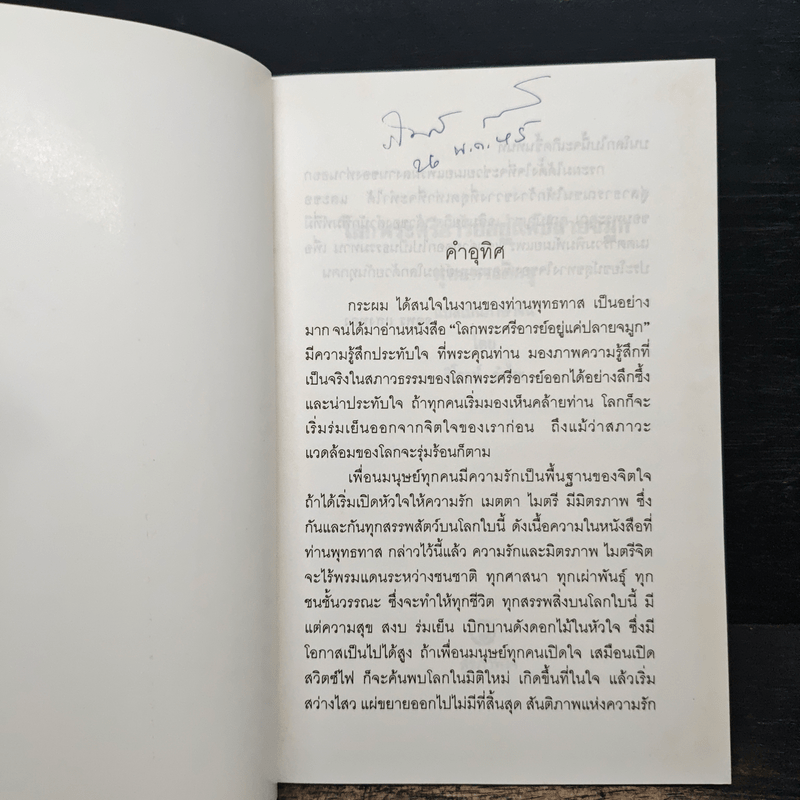 คำอุทิศ
กระผม ได้สนใจในงานของท่านพุทธทาส เป็นอย่าง
มาก จนได้มาอ่านหนังสือ “โลกพระศรีอารย์อยู่แค่ปลายจมูก”
มีความรู้สึกประทับใจ ที่พระคุณท่าน มองภาพความรู้สึกที่
เป็นจริงในสภาวธรรมของโลกพระศรีอารย์ออกได้อย่างลึกซึ้ง
และน่าประทับใจ ถ้าทุกคนเริ่มมองเห็นคล้ายท่าน โลกก็จะ
เริ่มร่มเย็นออกจากจิตใจของเราก่อน ถึงแม้ว่าสภาวะ
แวดล้อมของโลกจะรุ่มร้อนก็ตาม
เพื่อนมนุษย์ทุกคนมีความรักเป็นพื้นฐานของจิตใจ
ถ้าได้เริ่มเปิดหัวใจให้ความรัก เมตตา ไมตรี มีมิตรภาพ ซึ่ง
กันและกันทุกสรรพสัตว์บนโลกใบนี้ ดังเนื้อความในหนังสือที่
ท่านพุทธทาส กล่าวไว้นี้แล้ว ความรักและมิตรภาพ ไมตรีจิต
จะไร้พรมแดนระหว่างชนชาติ ทุกศาสนา ทุกเผ่าพันธุ์ ทุก
ชนชั้นวรรณะ ซึ่งจะทำให้ทุกชีวิต ทุกสรรพสิ่งบนโลกใบนี้ มี
แต่ความสุข สงบ ร่มเย็น เบิกบานดังดอกไม้ในหัวใจ ซึ่งมี
โอกาสเป็นไปได้สูง ถ้าเพื่อนมนุษย์ทุกคนเปิดใจ เสมือนเปิด
สวิตซ์ไฟ ก็จะค้นพบโลกในมิติใหม่ เกิดขึ้นที่ในใจ แล้วเริ่ม
สว่างไสว แผ่ขยายออกไปไม่มีที่สิ้นสุด สันติภาพแห่งความรัก